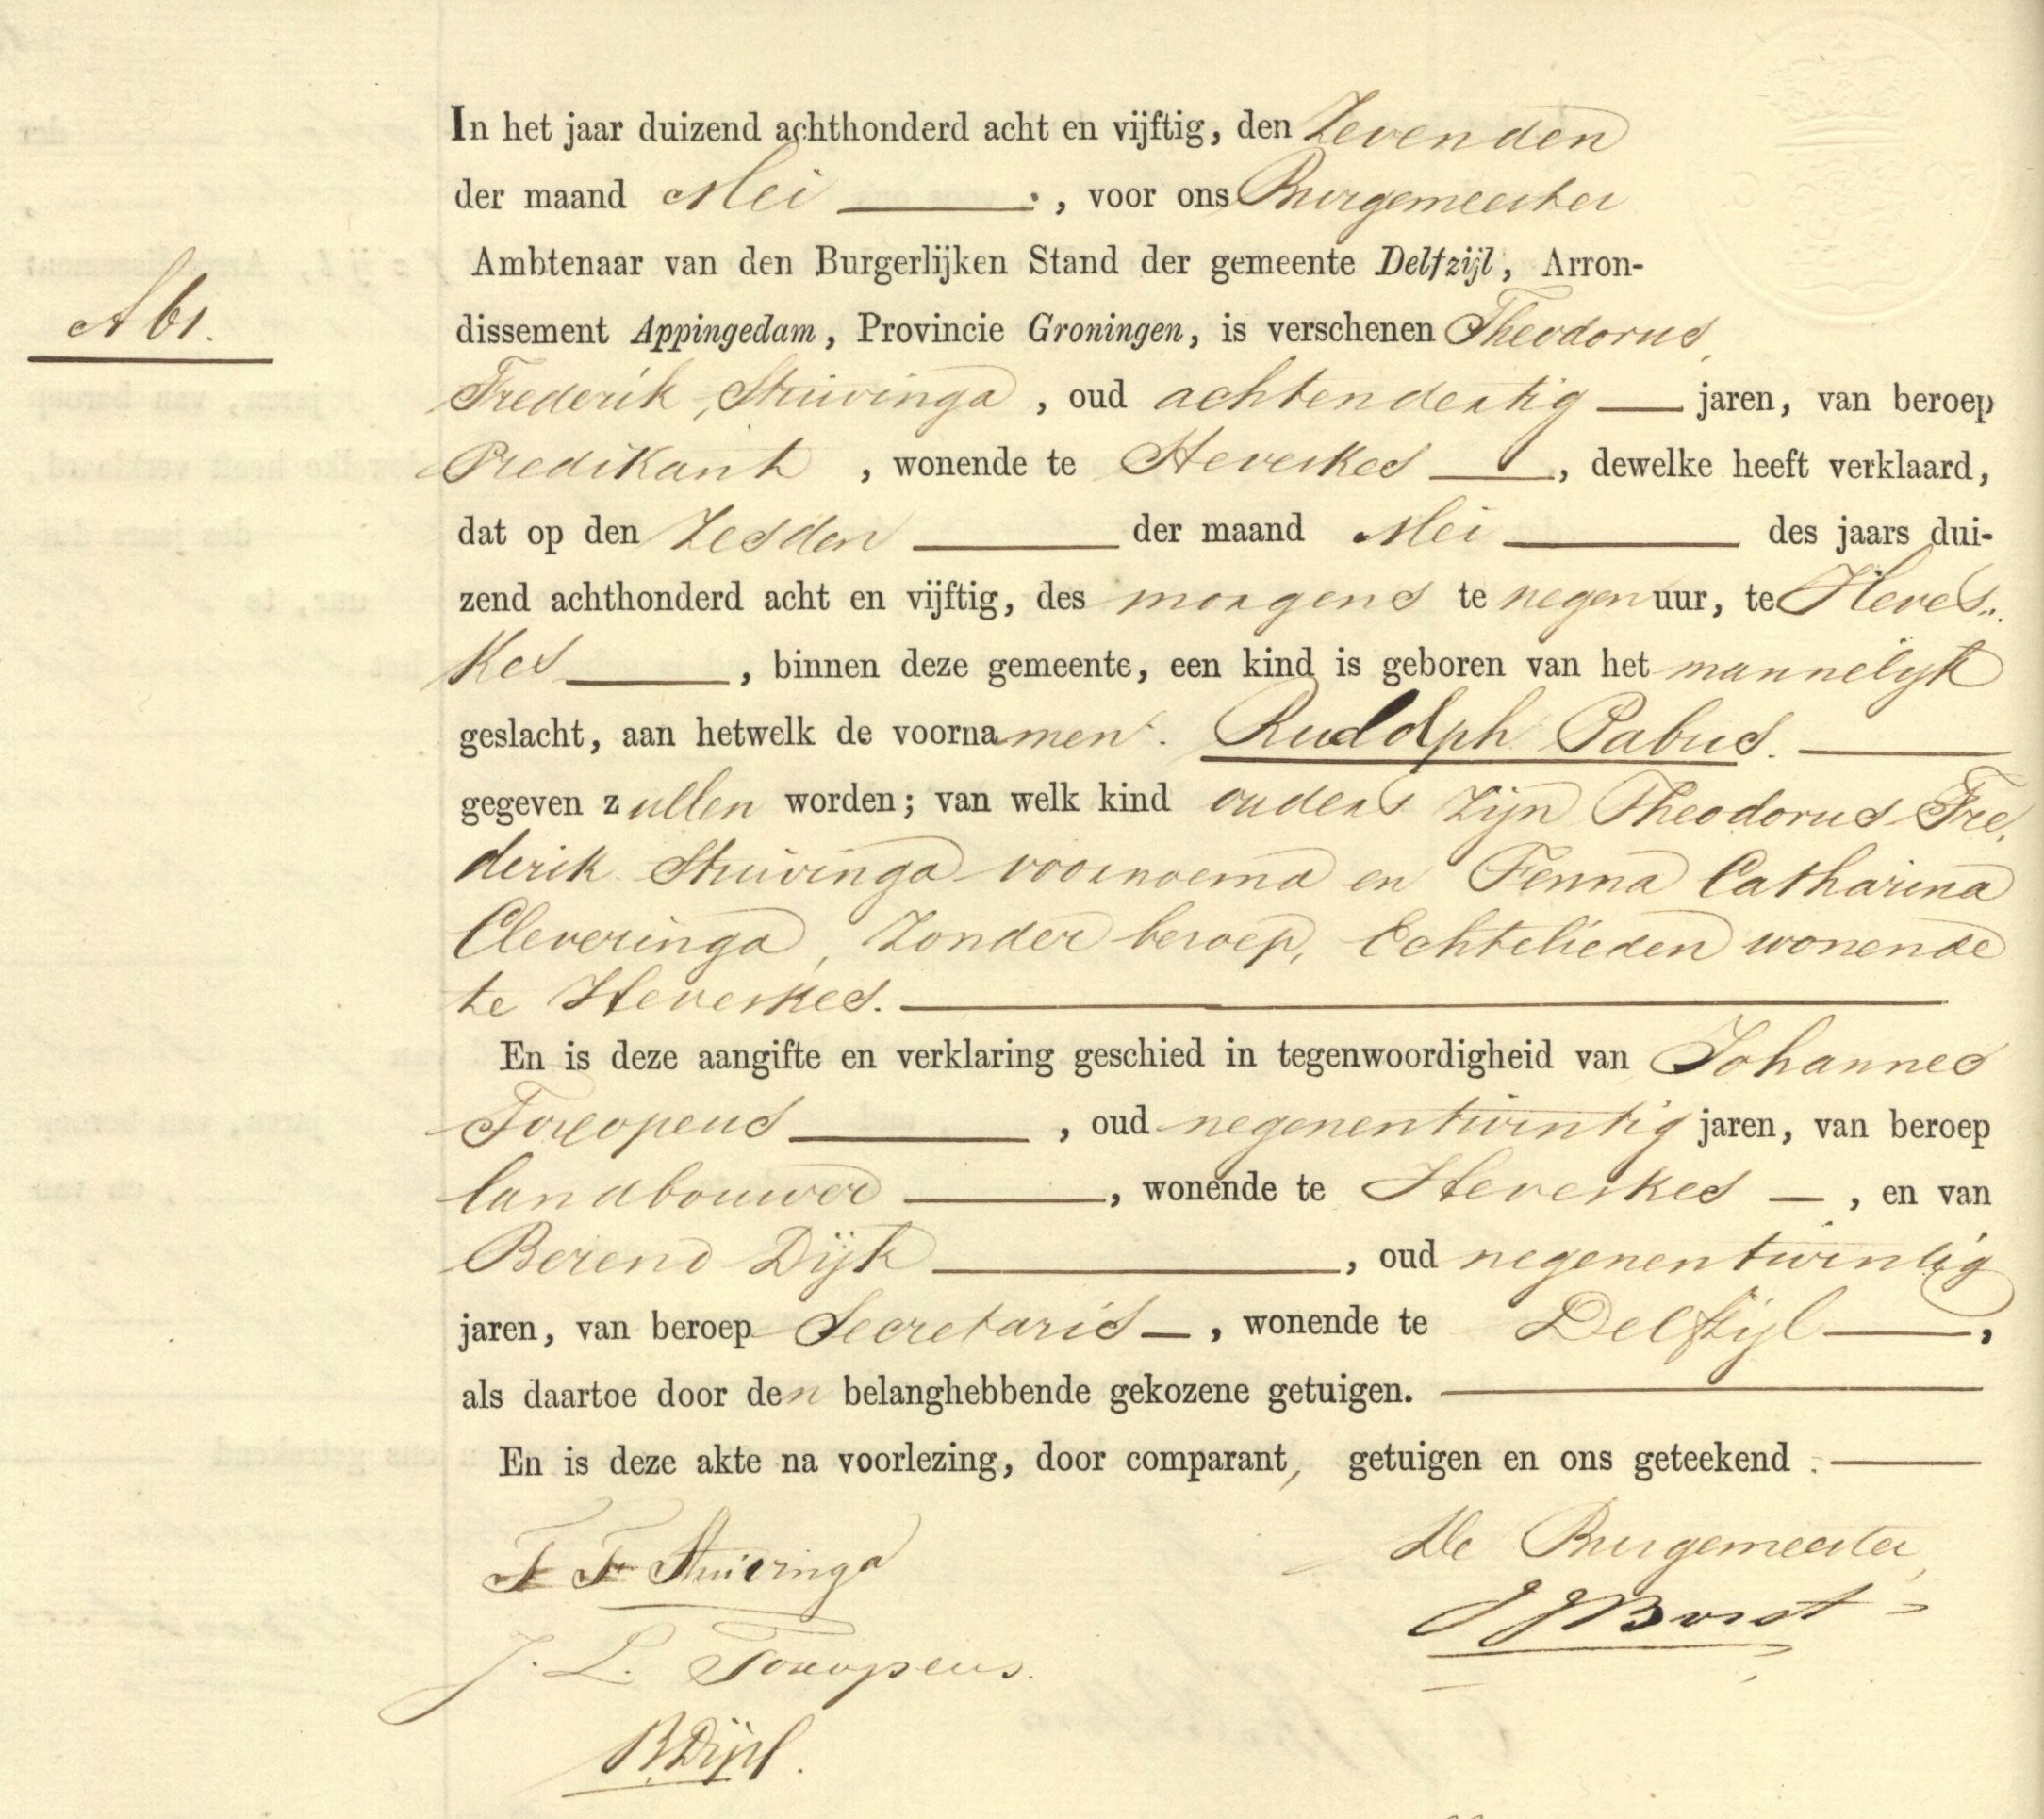 In het jaar duizend achthonderd acht en vijftig, den Zevenden
der maand Mei, voor ons Burgemeester
Ambtenaar van den Burgerlijken Stand der gemeente Delfzijl, Arron-
No 61.
dissement Appingedam, Provincie Groningen, is verschenen Theodorus
Frederik Stuivinga, oud achtendertig jaren, van beroep
Predikant, wonende te Heveskes, dewelke heeft verklaard,
dat op den Zesden der maand Mei des jaars dui-
zend achthonderd acht en vijftig, des morgens te negen uur, te Heves..
kes, binnen deze gemeente, een kind is geboren van het mannelijk
geslacht, aan hetwelk de voornamen. Rudolph Pabus.
gegeven zullen worden; van welk kind ouders zijn Theodorus Fre,
derik Stuivinga voornoemd en Fenna Catharina
Cleveringa, zonder beroep, Echtelieden wonende
te Heveskes.
En is deze aangifte en verklaring geschied in tegenwoordigheid van Johannes
Toxopeus, oud negenentwintig jaren, van beroep
landbouwer, wonende te Heveskes, en van
Berend Dijk, oud negenentwintig
jaren, van beroep Secretaris, wonende te Delfzijl,
als daartoe door den belanghebbende gekozene getuigen.
En is deze akte na voorlezing, door comparant, getuigen en ons geteekend.
De Burgemeester,
T F Stuivinga
J. L. Toxopeus.
B Dijk.